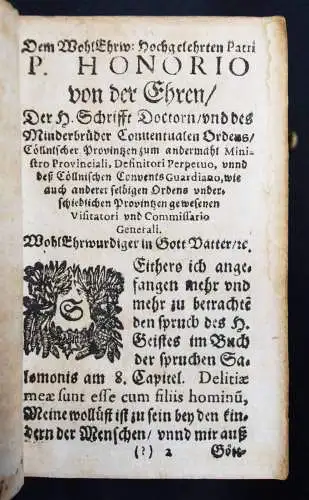 Dem WohlEhrw: Hochgelehrten Patri
P. HONORIO
von der Ehren/
Der H. Schrifft Doctorn/ vnd des
Minderbrüder Conuentualen Ordens/
Cöllnischer Provintzen zum andermahl Mini-
stro Provinciali, Definitori Perpetuo, vnnd
deß Cöllnischen Convents Guardiano, wie
auch anderer selbigen Ordens vnder-
schiedlichen Provintzen gewesenen
Visitatori vnd Commissario
Generali.
WohlEhrwurdiger in Gott Vatter/ ꝛc.
SEithero ich ange-
fangen mehr vnd
mehr zu betrachtẽ
den spruch des H.
Geistes im Buch
der spruchen Sa-
lomonis am 8. Capitel. Delitiæ
meæ sunt esse cum filiis hominũ,
Meine wollüst ist zu sein bey den kin-
dern der Menschen/ vnnd mir auß
(?) 2 Gött-